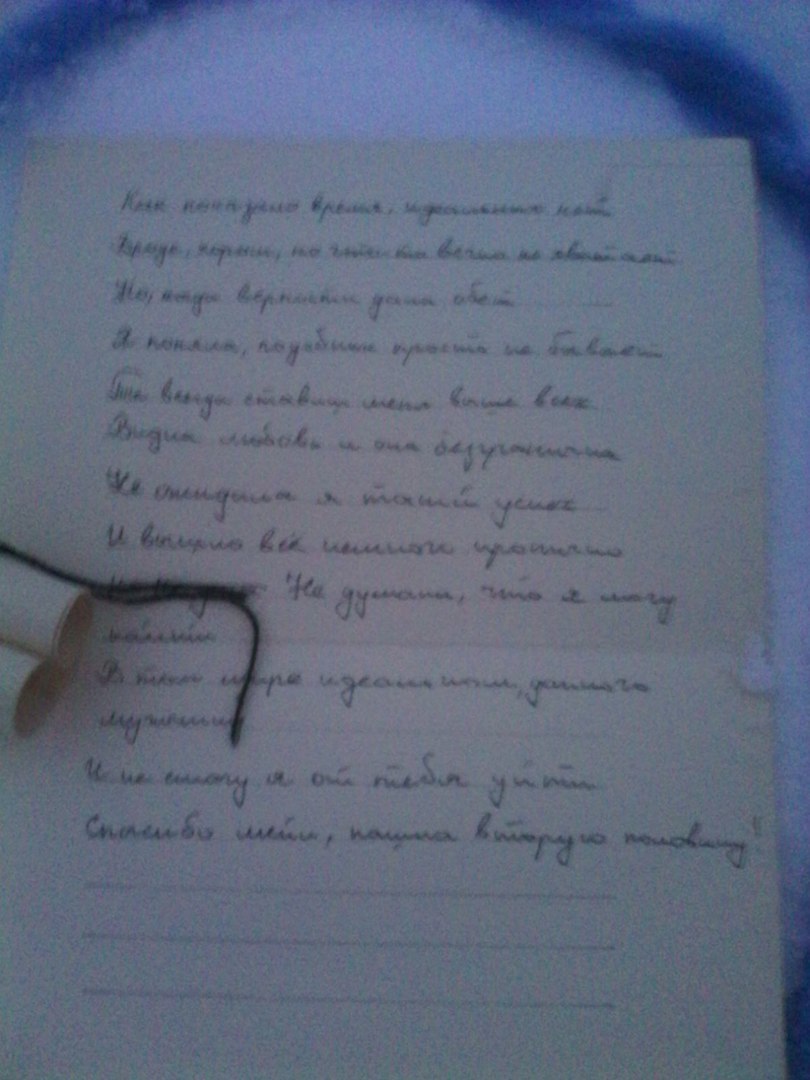 Как показало время, идеальных нет
Вроде, хорош, но чего-то вечно не хватает
Но, когда верности дала обет
Я поняла, подобных просто не бывает
Ты всегда ставишь меня выше всех
Видна любовь и она безгранична
Не ожидала я такой успех
И вышло всё немного иронично
Не думала, что я могу
найти
В том мире идеальном, умного
мужчину
И не смогу я от тебя уйти
Спасибо, нашла вторую половину"